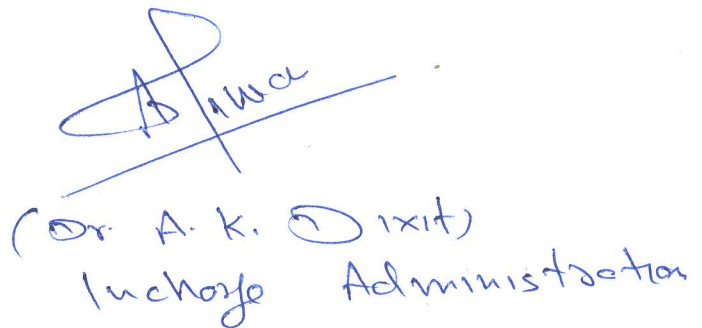 (Dr. A. K. Dixit)
Incharge Administration